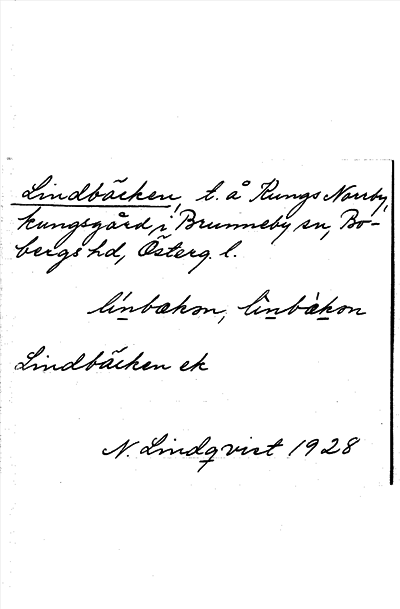 Lindbäcken, t. å Kungs Norrby,
kungsgård, i Brunneby sn, Bo-
bergs hd, Österg. l.
línbækən, lìnbàkən
Lindbäcken ek
N. Lindqvist 1928